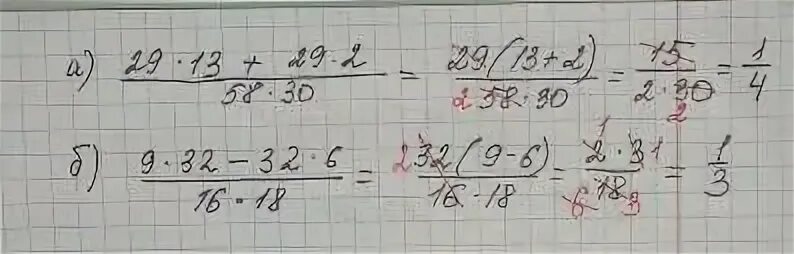 а) (29·13 + 29·2)/(58·30) = (29(13+2))/(2 58·30) = 15/(2·30 2) = 1/4
б) (9·32 − 32·6)/(16·18) = (2 32(9-6))/(16·18) = (1 2·3 1)/(6 18 3) = 1/3